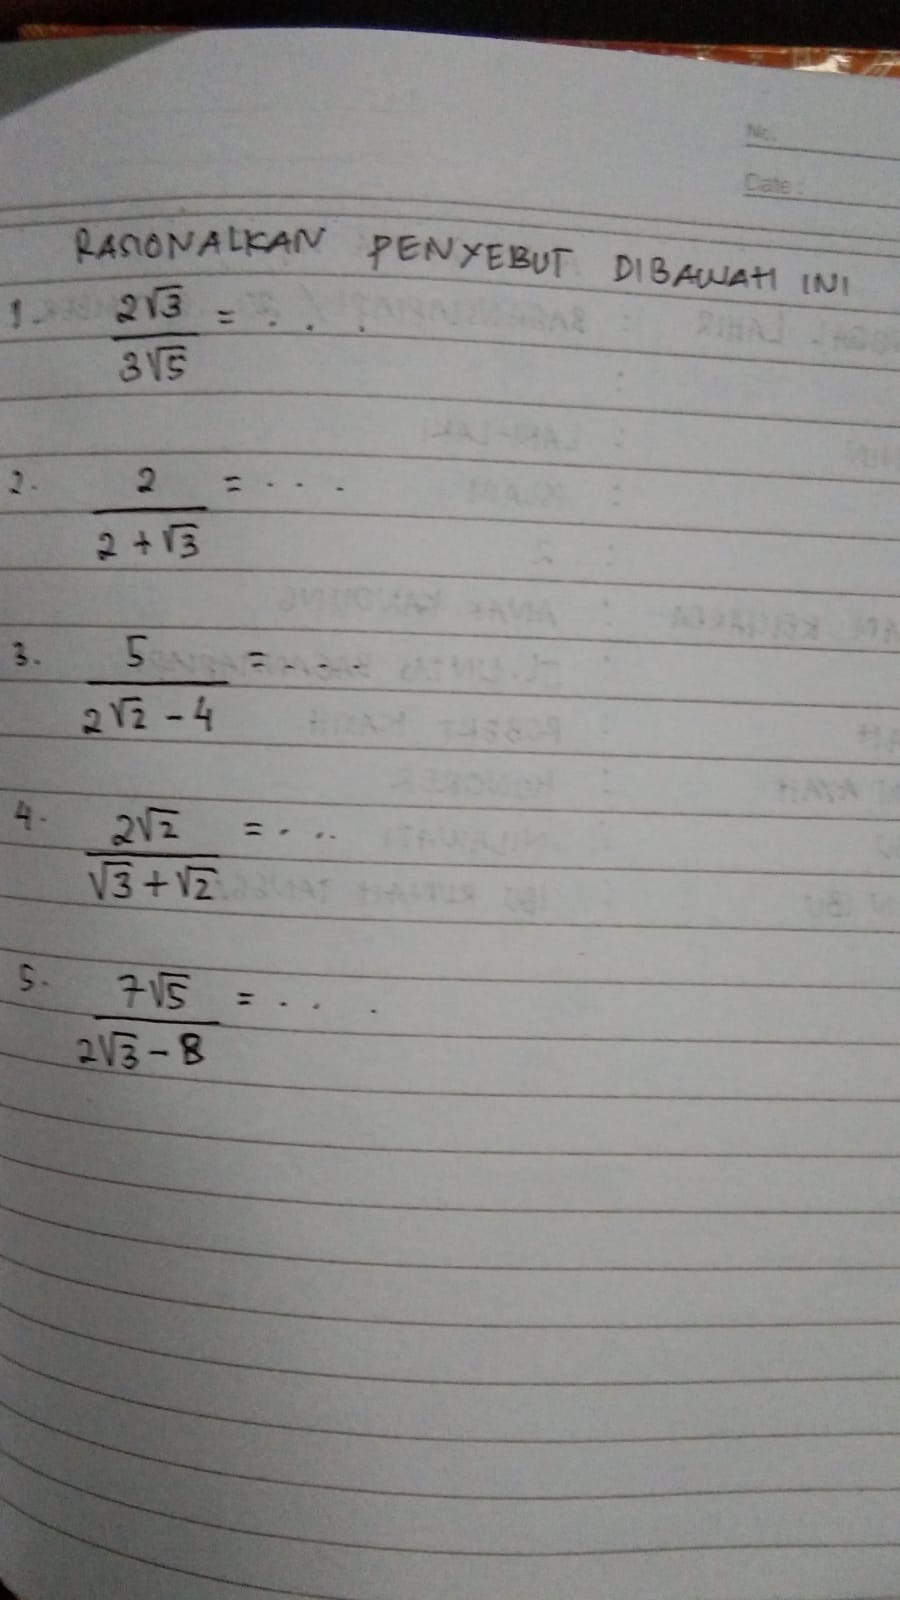 No.
Date:
RASIONALKAN PENYEBUT DIBAWAH INI
1. 2√3 / 3√5 = . . .
2. 2 / 2 + √3 = . . .
3. 5 / 2√2 - 4 = . . .
4. 2√2 / √3 + √2 = . . .
5. 7√5 / 2√3 - 8 = . . .